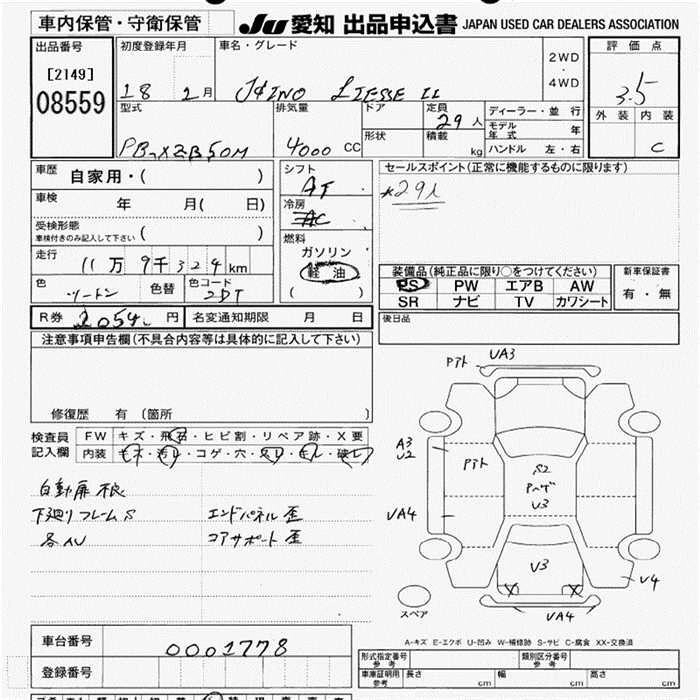 車内保管・守衛保管
JU 愛知 出品申込書 JAPAN USED CAR DEALERS ASSOCIATION
出品番号
[2149]
08559
初度登録年月
18 2月
車名・グレード
HINO LIESSE II
2WD
・
4WD
評価点
3.5
外装 内装
C
型式
排気量
4000 CC
ドア
形状
定員
29人
積載
kg
ディーラー・並行
モデル年式 年
ハンドル 左・右
車歴
自家用・( )
車検
年 月( 日)
受検形態
車検付きのみ記入して下さい ( )
走行
11万9千324km
色
ツートン
色替
色コード
2DT
シフト
AT
冷房
AC
燃料
ガソリン
軽油
( )
セールスポイント(正常に機能するものに限ります)
装備品(純正品に限り○をつけてください)
PS PW エアB AW
SR ナビ TV カワシート
新車保証書
有・無
後日品
R券 円
名変通知期限 月 日
注意事項申告欄(不具合内容等は具体的に記入して下さい)
修復歴 有 (箇所 )
検査員
記入欄
FW キズ・飛石・ヒビ割・リペア跡・X要
内装 キズ・汚れ・コゲ・穴・スレ・キレ・破レ
自動扉
下廻りフレームS
各AU
エンドパネル歪
コアサポート歪
Pアト
UA3
A3
U2
Pアト
S2
Pヘザ
U3
UA4
U3
X X
U4
UA4
スペア
A-キズ E-エクボ U-凹み W-補修跡 S-サビ C-腐食 XX-交換済
車台番号
0001778
登録番号
形式指定番号
参考
類別区分番号
参考
車庫証明用
参考
長さ cm 幅 cm 高さ cm